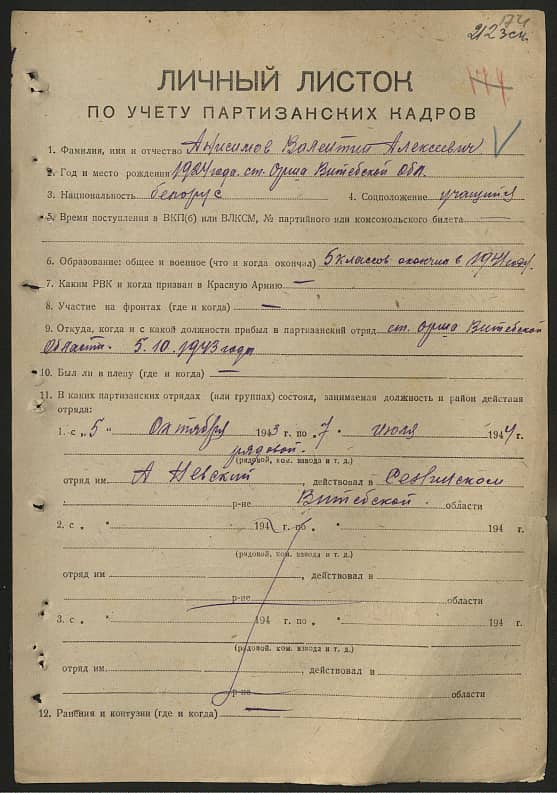 174
2123сн.
144
ЛИЧНЫЙ ЛИСТОК
ПО УЧЕТУ ПАРТИЗАНСКИХ КАДРОВ
1. Фамилия, имя и отчество Анисимов Валентин Алексеевич
2. Год и место рождения 1924 года. ст. Орша Витебской Обл.
3. Национальность белорус 4. Соцположение учащийся
5. Время поступления в ВКП(б) или ВЛКСМ, № партийного или комсомольского билета —
6. Образование: общее и военное (что и когда окончил) 5 классов окончил в 1941 году.
7. Каким РВК и когда призван в Красную Армию —
8. Участие на фронтах (где и когда) —
9. Откуда, когда и с какой должности прибыл в партизанский отряд ст. Орша Витебской
Области. 5.10.1943 года
10. Был ли в плену (где и когда) —
11. В каких партизанских отрядах (или группах) состоял, занимаемая должность и район действия
отряда:
1. с „5" Октября 1943 г. по „7" июля 1944 г.
рядовой.
(рядовой, ком. взвода и т. д.)
отряд им А Невский, действовал в
р-не Витебской области
2. с „ " 194 г. по „ " 194 г.
(рядовой, ком. взвода и т. д.)
отряд им , действовал в
р-не области
3. с „ " 194 г. по „ " 194 г.
(рядовой, ком. взвода и т. д.)
отряд им , действовал в
р-не области
12. Ранения и контузии (где и когда) —